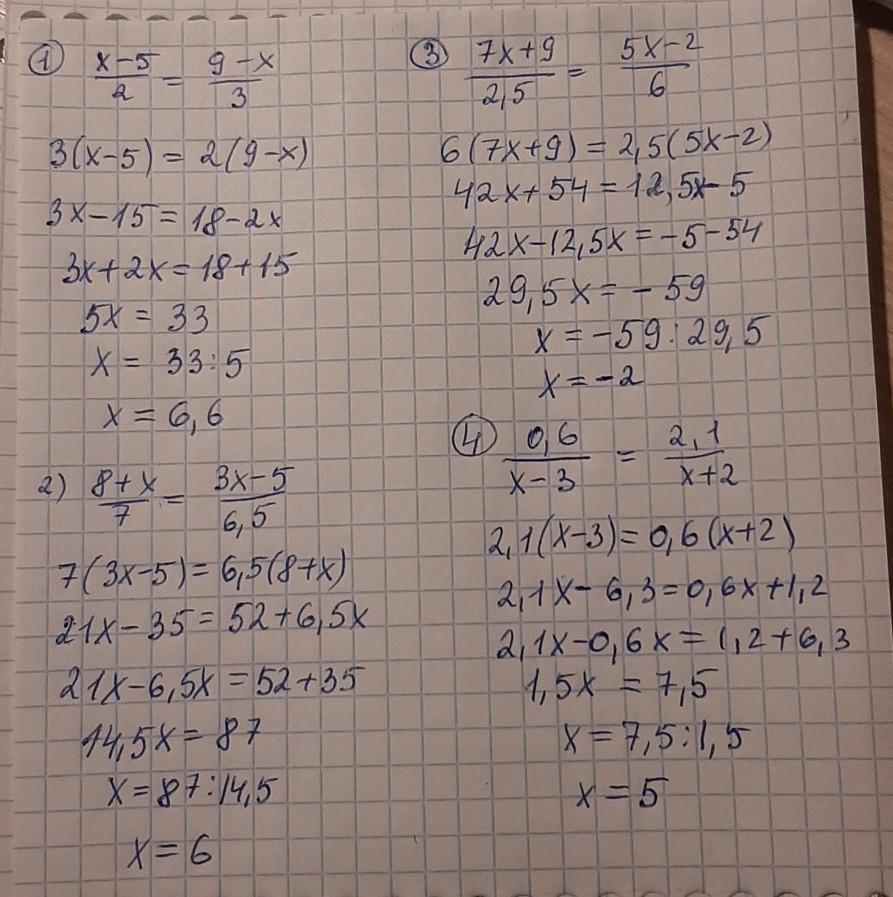 ① x-5/2 = 9-x/3
3(x-5) = 2(9-x)
3x-15 = 18-2x
3x+2x = 18+15
5x = 33
x = 33:5
x = 6,6
2) 8+x/7 = 3x-5/6,5
7(3x-5) = 6,5(8+x)
21x-35 = 52+6,5x
21x-6,5x = 52+35
14,5x = 87
x = 87:14,5
x = 6
③ 7x+9/2,5 = 5x-2/6
6(7x+9) = 2,5(5x-2)
42x+54 = 12,5x-5
42x-12,5x = -5-54
29,5x = -59
x = -59:29,5
x = -2
④ 0,6/x-3 = 2,1/x+2
2,1(x-3) = 0,6(x+2)
2,1x-6,3 = 0,6x+1,2
2,1x-0,6x = 1,2+6,3
1,5x = 7,5
x = 7,5:1,5
x = 5